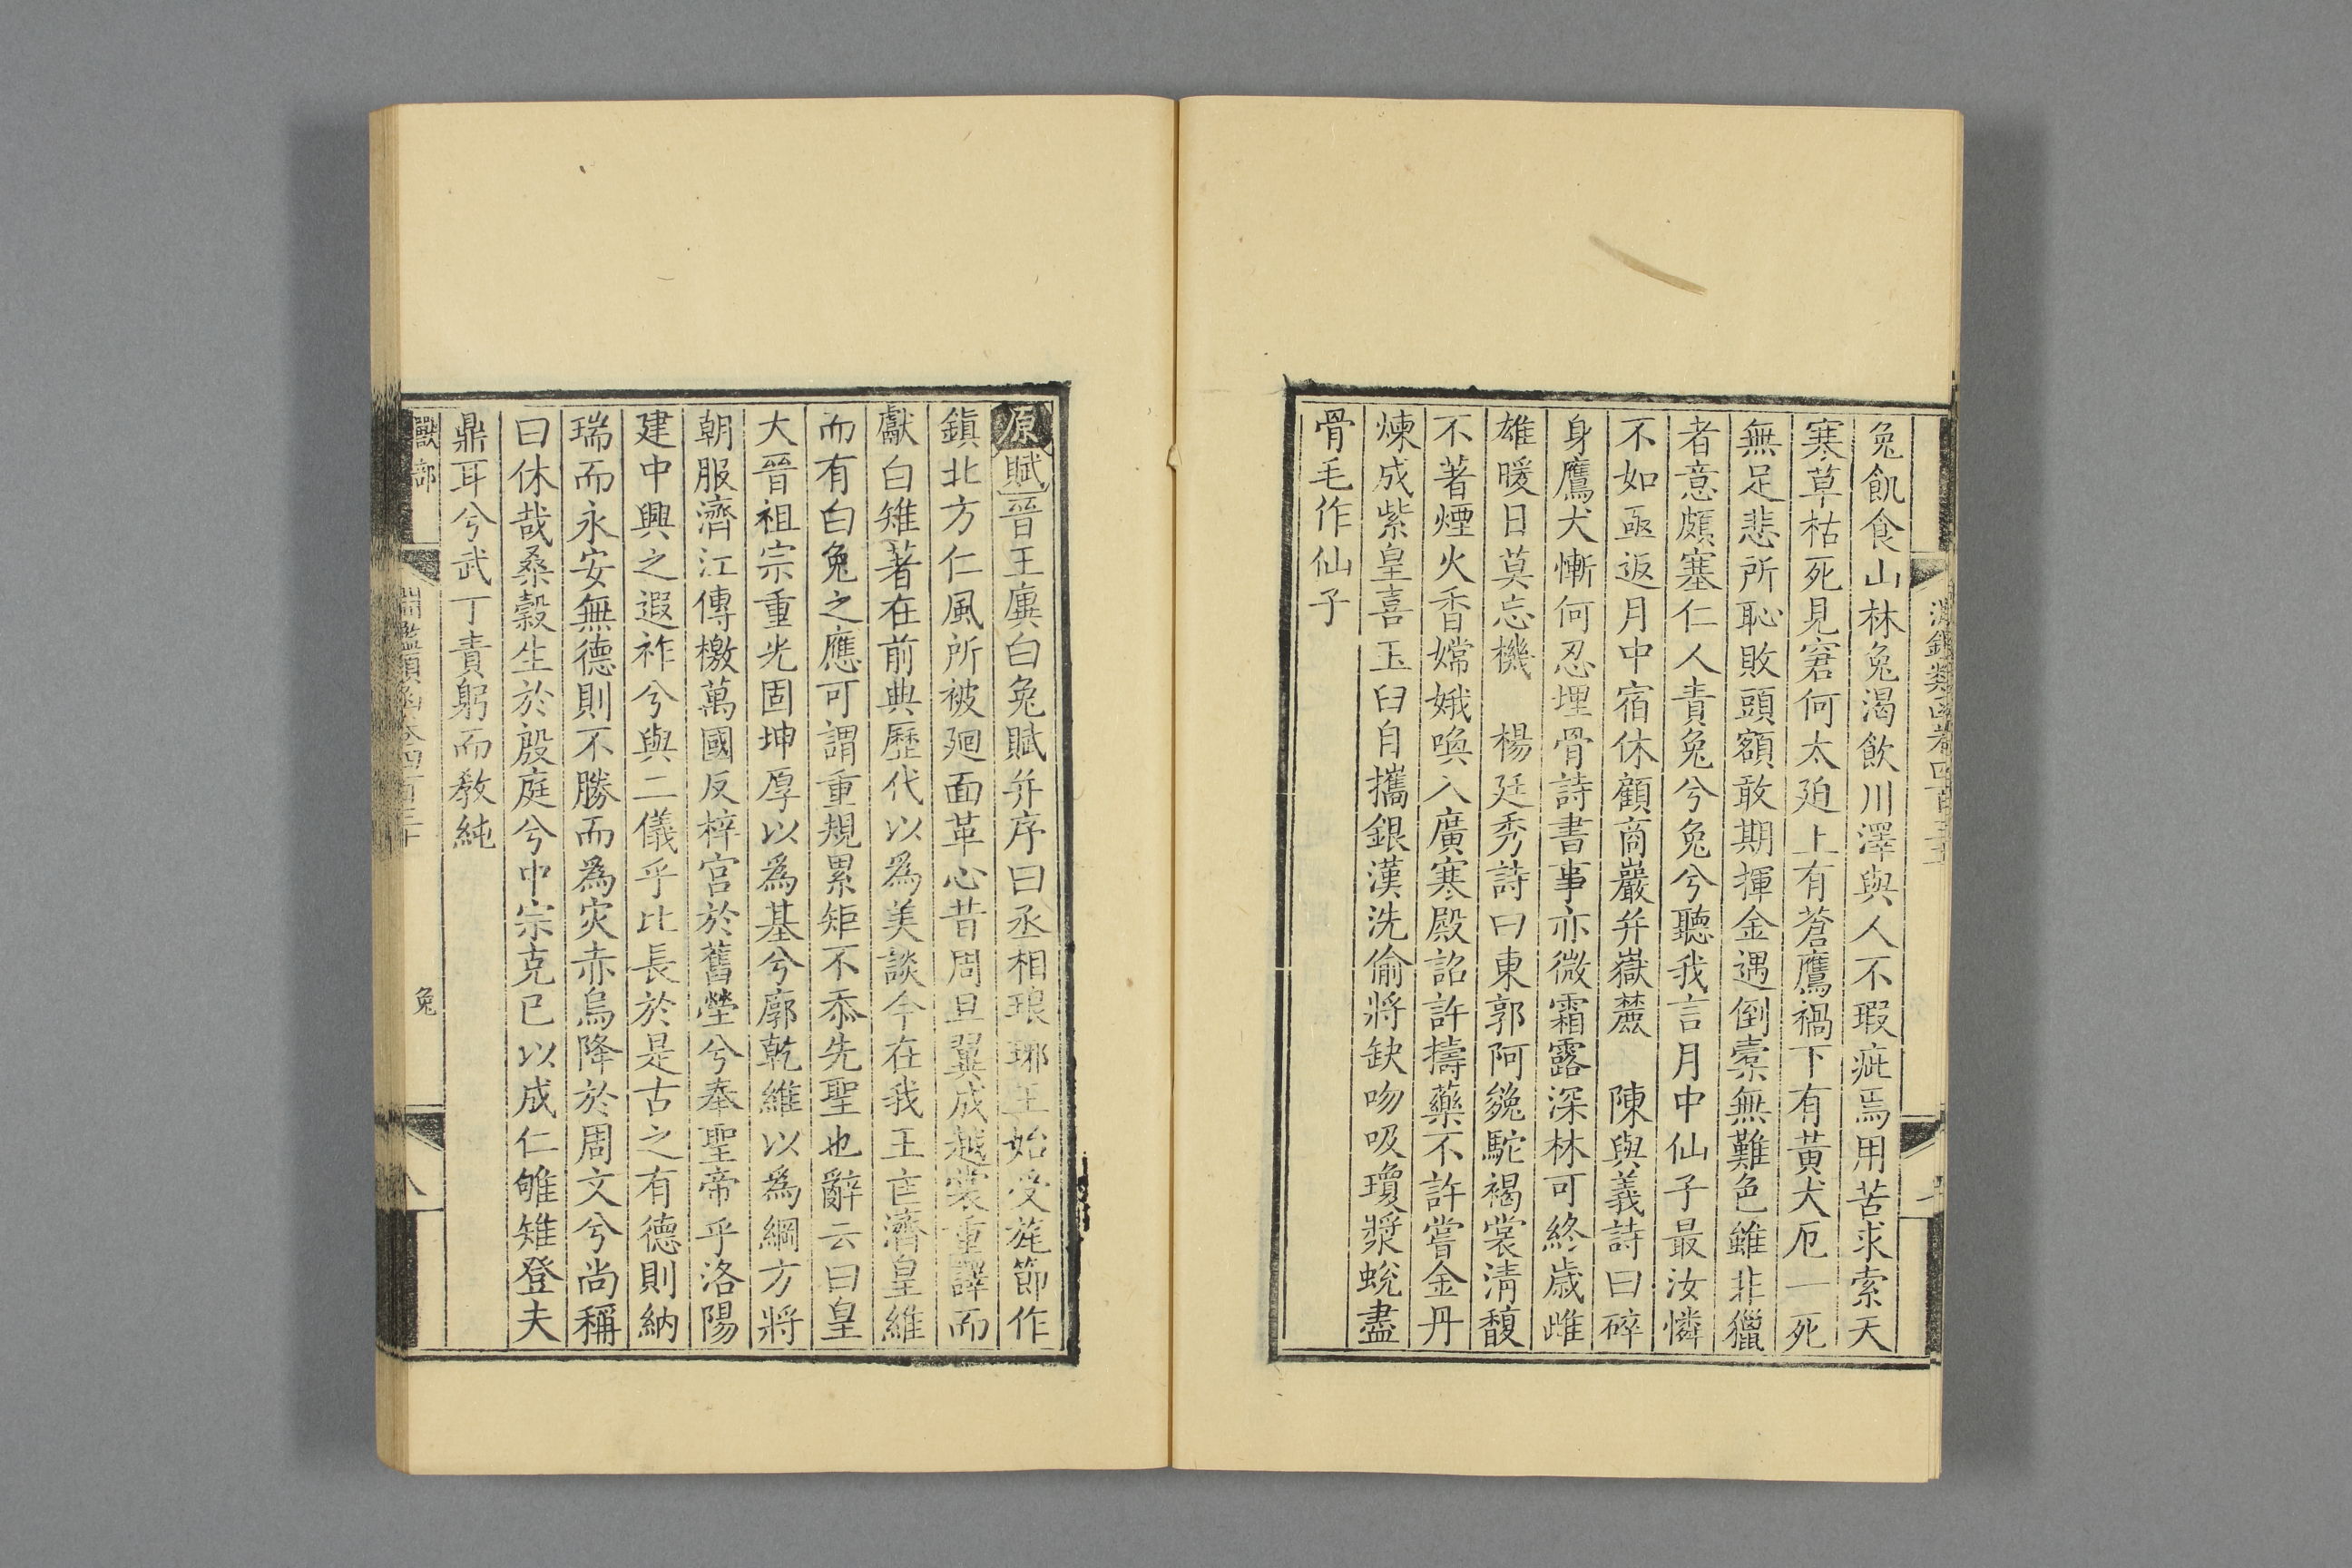 兔飢食山林兔渴飲川澤與人不瑕疵焉用苦求索天
寒草枯死見窘何太迫上有蒼鷹禍下有黃犬厄一死
無足悲所恥敗頭額敢期揮金遇倒橐無難色雖非獵
者意頗塞仁人責兔兮兔兮聽我言月中仙子最汝憐
不如亟返月中宿休顧商巖幷嶽麓 陳與義詩曰碎
身鷹犬慚何忍埋骨詩書事亦微霜露深林可終歲雌
雄暖日莫忘機 楊廷秀詩曰東郭阿㕙駝褐裳清馥
不著煙火香嫦娥喚入廣寒殿詔許擣藥不許嘗金丹
煉成紫皇喜玉臼自攜銀漢洗偷將缺吻吸瓊漿蛻盡
骨毛作仙子
原賦晉王廙白兔賦幷序曰丞相琅琊王始受旄節作
鎮北方仁風所被廻面革心昔周旦翼成越裳重譯而
獻白雉著在前典歷代以爲美談今在我王匡濟皇維
而有白兔之應可謂重規累矩不忝先聖也辭云曰皇
大晉祖宗重光固坤厚以爲基兮廓乾維以爲綱方將
朝服濟江傳檄萬國反梓宮於舊塋兮奉聖帝乎洛陽
建中興之遐祚兮與二儀乎比長於是古之有德則納
瑞而永安無德則不勝而爲灾赤烏降於周文兮尚稱
曰休哉桑穀生於殷庭兮中宗克已以成仁雊雉登夫
鼎耳兮武丁責躬而教純
獸部
兔
八